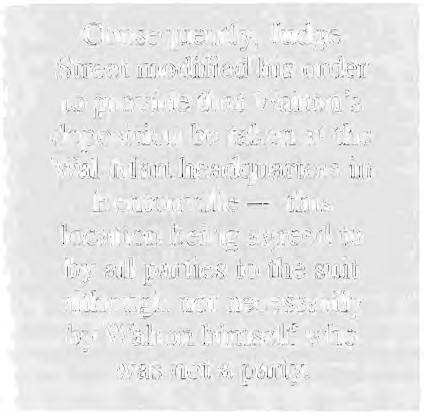 Consequently, Judge
Street modified his order
to provide that Walton's
deposition be taken at the
Wal-Mart headquarters in
Bentonville — this
location being agreed to
by all parties to the suit
although not necessarily
by Walton himself who
was not a party.